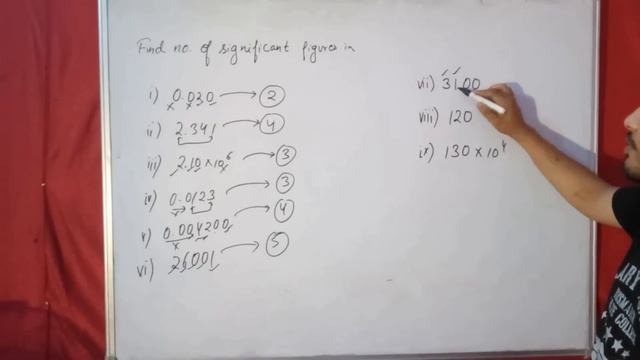 Find no. of significant figures in
i) 0.030 → 2
ii) 2.341 → 4
iii) 2.10 × 10⁶ → 3
iv) 0.0123 → 3
v) 0.004200 → 4
vi) 26001 → 5
vii) 3100
viii) 120
ix) 130 × 10⁴